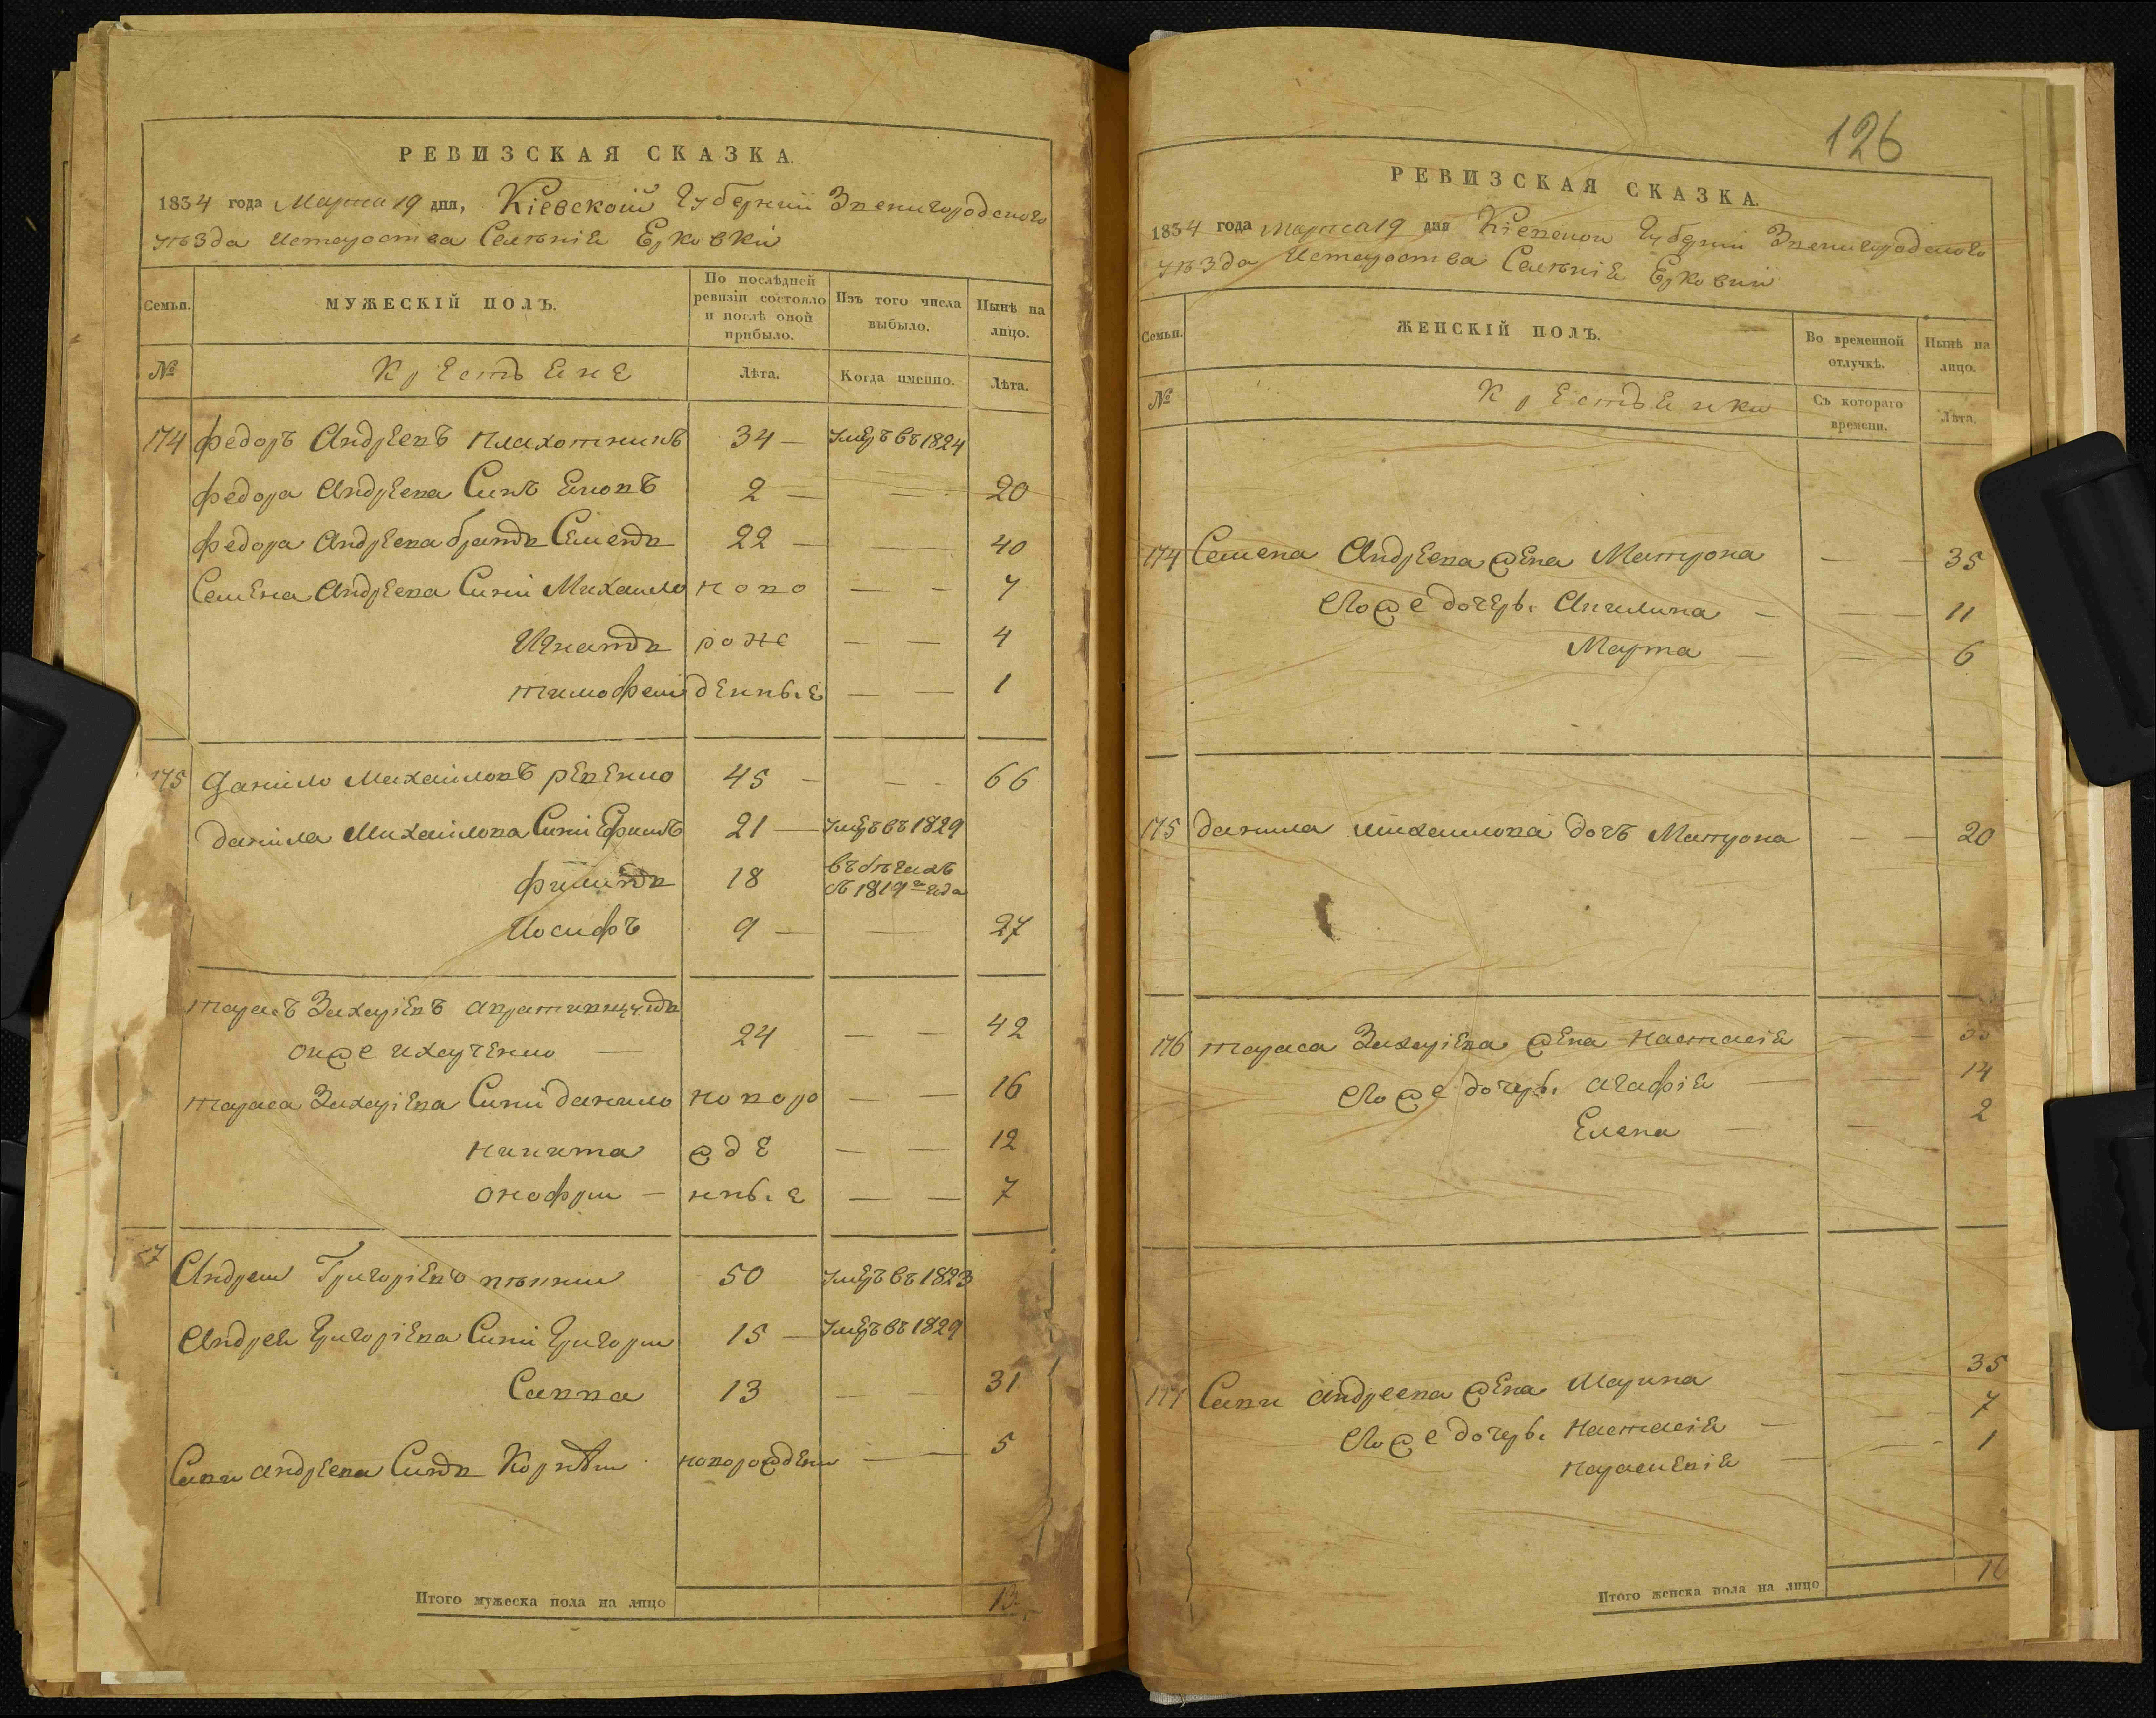 РЕВИЗСКАЯ СКАЗКА.
1834 года Марта 19 дня, Кіевской Губерніи Звенигородского
уѣзда Истароства Селѣнія Ерковки
Семьи. МУЖЕСКІЙ ПОЛЪ. По послѣдней ревизіи состояло и послѣ оной прибыло. Изъ того числа выбыло. Нынѣ на лицо.
№ Крестьяне Лѣта. Когда именно. Лѣта.
174 Федоръ Андреевъ Плахотникъ 34 — умеръ въ 1824
Федора Андреева Синъ Емокъ 2 — 20
Федора Андреева братъ Семенъ 22 — 40
Семена Андреева Сини Михаило ново — 7
Игнатъ рож — 4
тимофеи денные — 1
175 Данило Михаиловъ ревенко 45 — 66
Данила Михаилова Сини Ефимъ 21 — умеръ въ 1829
Филипъ 18 въ бѣгахъ съ 1819 года
Иосифъ 9 — 27
тарасъ Захаріевъ
онже ихарченко — 24 — 42
тараса Захаріева Сини данило новоро — 16
никита жде — 12
онофри — нные — 7
Андреи Григоріевъ 50 умеръ въ 1823
Андрея Григоріева Сини Григори 15 — умеръ въ 1829
Савва 13 — 31
Сави андреева Синъ Корнѣи новорожден — 5
Итого мужеска пола на лицо 13
126
РЕВИЗСКАЯ СКАЗКА.
1834 года марта 19 дня Кіевской Губерніи Звенигородского
уѣзда Истароства Селѣнія Ерковки
Семьи. ЖЕНСКІЙ ПОЛЪ. Во временной отлучкѣ. Нынѣ на лицо.
№ Крестьянки Съ котораго времени. Лѣта.
174 Семена Андреева жена Матрона — 35
Егоже дочеры Ангилина — 11
Марта — 6
175 данила михаилова дочь Матрона — 20
176 тараса Захаріева жена настасія —
Егоже дочеры агафія — 14
Елена — 2
177 Сави андреева жена Марина — 35
Егоже дочеры настасія — 7
параскевія — 1
Итого женска пола на лицо